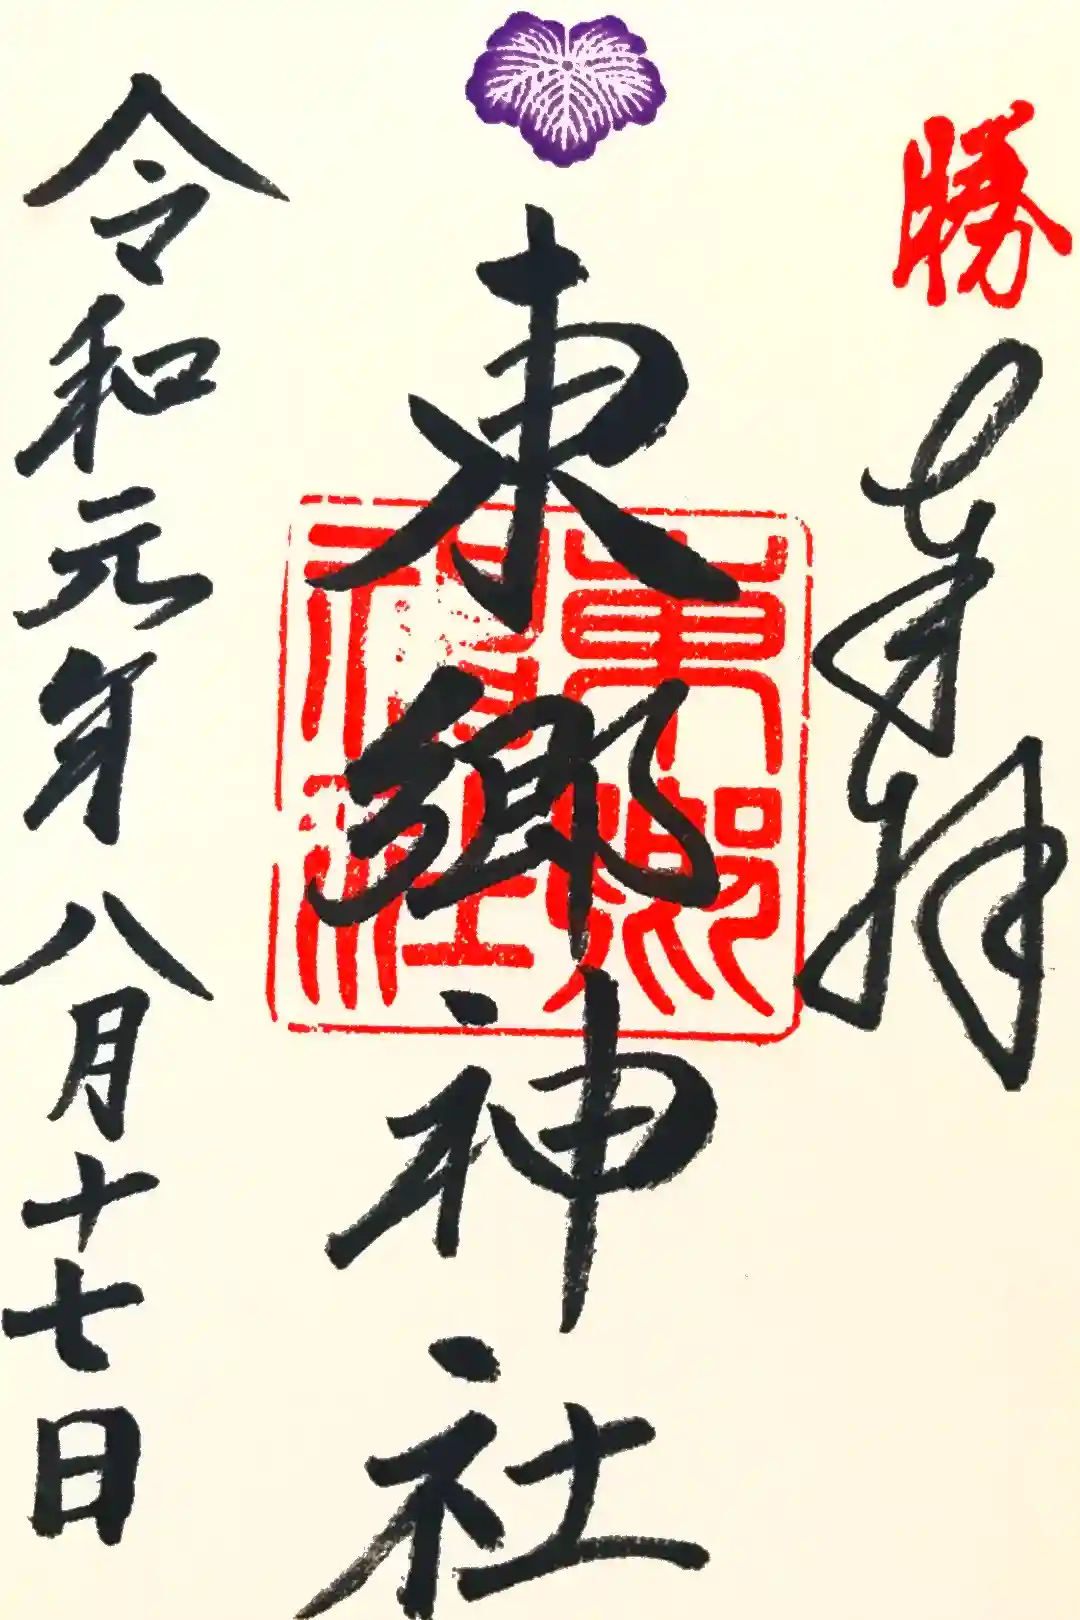 勝
奉拝
東郷神社
東郷
神社
令和元年八月十七日